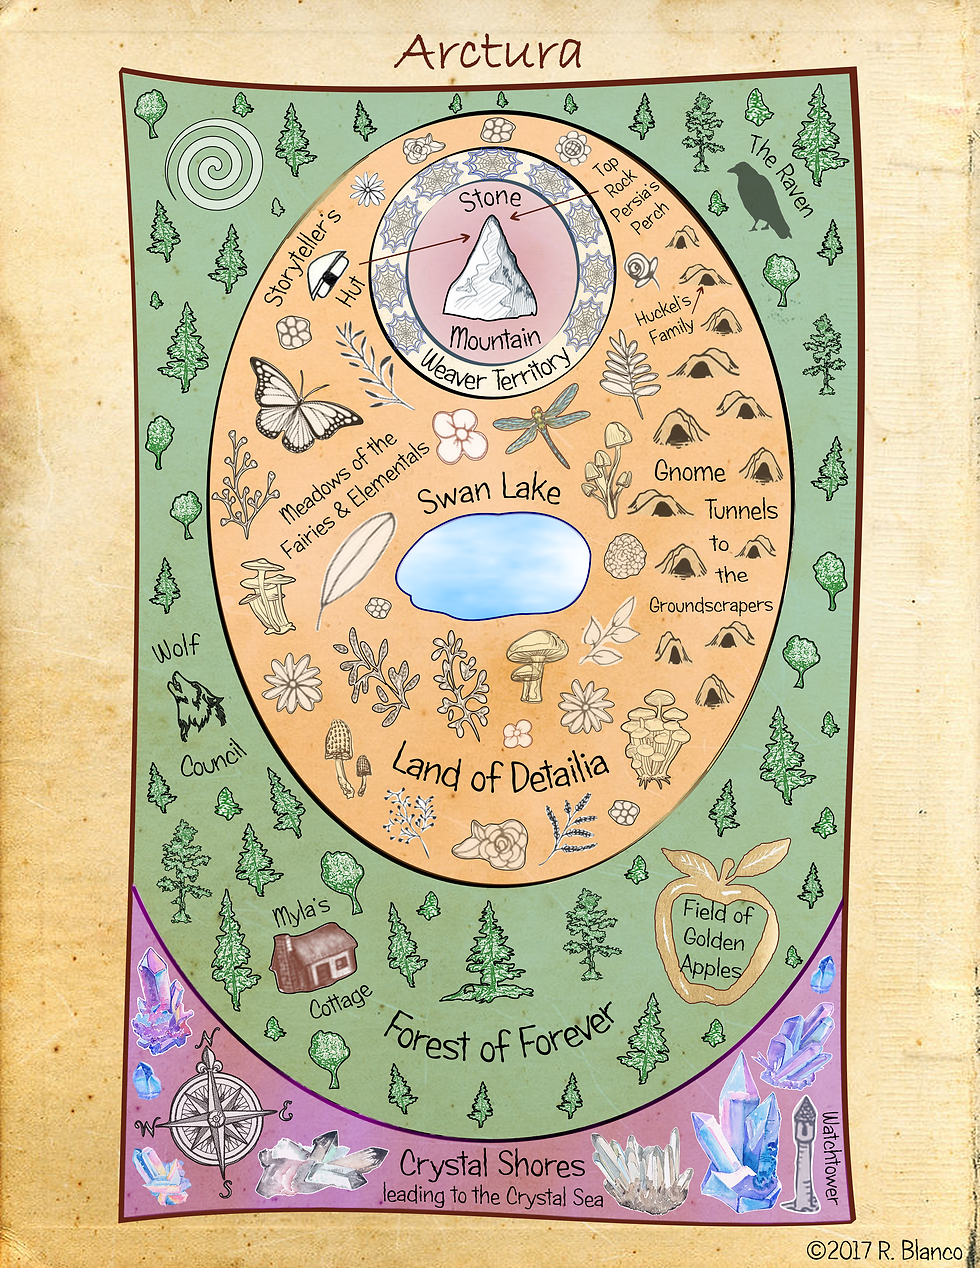 Arctura
The Raven
Top
Rock
Persia's
Perch
Stone
Mountain
Weaver Territory
Storyteller's
Hut
Huckel's
Family
Meadows of the
Fairies & Elementals
Swan Lake
Gnome
Tunnels
to
the
Groundscrapers
Wolf
Council
Land of Detailia
Myla's
Cottage
Field of
Golden
Apples
Forest of Forever
N
W
E
S
Crystal Shores
leading to the Crystal Sea
Watchtower
©2017 R. Blanco